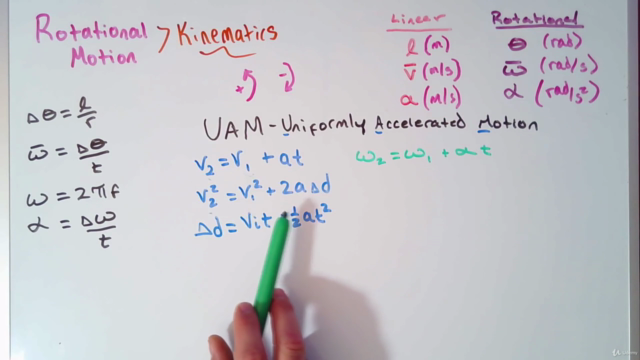 Rotational Motion > Kinematics
Linear
Rotational
l (m)
θ (rad)
v̄ (m/s)
ω̄ (rad/s)
a (m/s)
α (rad/s²)
+
-
Δθ = l/r
ω̄ = Δθ/t
ω = 2πf
α = Δω/t
UAM - Uniformly Accelerated Motion
v₂ = v₁ + at
ω₂ = ω₁ + αt
v₂² = v₁² + 2aΔd
Δd = v₁t + ½at²